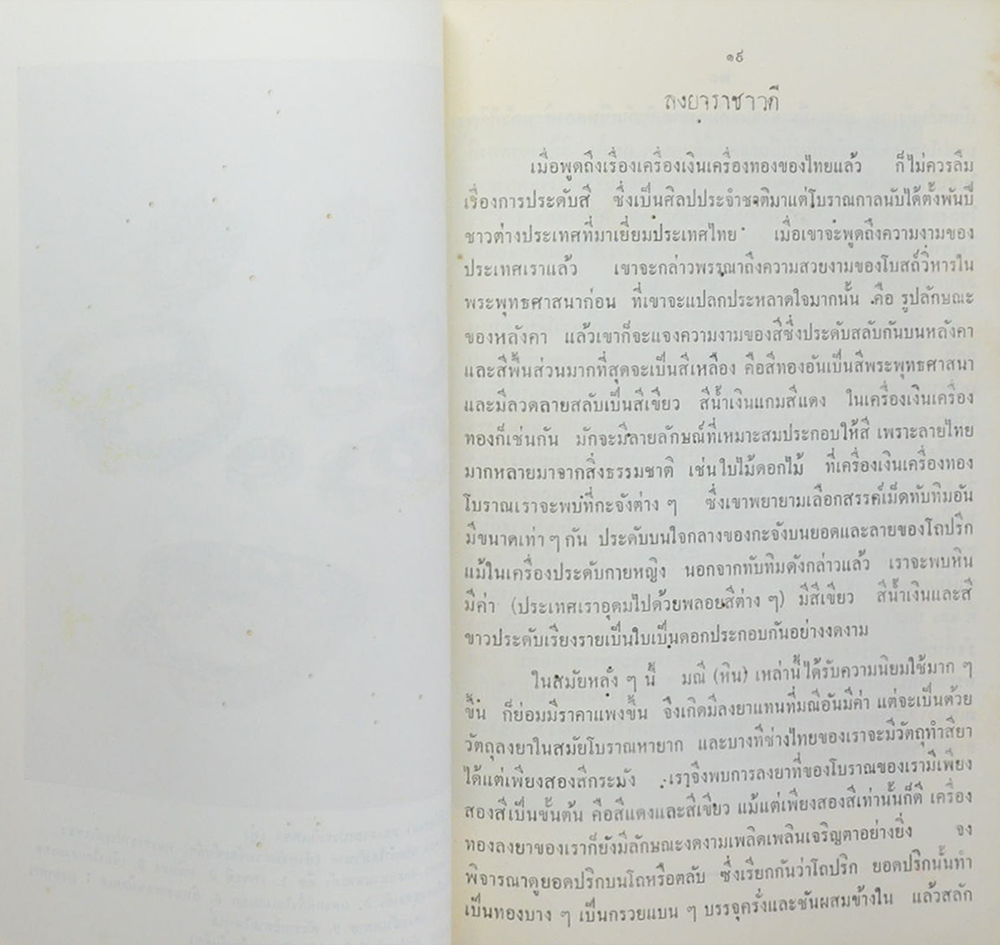 ๑๙
ลงยาราชาวดี
เมื่อพูดถึงเรื่องเครื่องเงินเครื่องทองของไทยแล้ว ก็ไม่ควรลืม
เรื่องการประดับสี ซึ่งเป็นศิลปประจำชาติมาแต่โบราณกาลนับได้ตั้งพันปี
ชาวต่างประเทศที่มาเยี่ยมประเทศไทย เมื่อเขาจะพูดถึงความงามของ
ประเทศเราแล้ว เขาจะกล่าวพรรณาถึงความสวยงามของโบสถ์วิหารใน
พระพุทธศาสนาก่อน ที่เขาจะแปลกประหลาดใจมากนั้น คือ รูปลักษณะ
ของหลังคา แล้วเขาก็จะแจงความงามของสีซึ่งประดับสลับกันบนหลังคา
และสีพื้นส่วนมากที่สุดจะเป็นสีเหลือง คือสีทองอันเป็นสีพระพุทธศาสนา
และมีลวดลายสลับเป็นสีเขียว สีน้ำเงินแกมสีแดง ในเครื่องเงินเครื่อง
ทองก็เช่นกัน มักจะมีลายลักษณ์ที่เหมาะสมประกอบให้สี เพราะลายไทย
มากหลายมาจากสิ่งธรรมชาติ เช่นใบไม้ดอกไม้ ที่เครื่องเงินเครื่องทอง
โบราณเราจะพบที่กะจังต่าง ๆ ซึ่งเขาพยายามเลือกสรรค์เม็ดทับทิมอัน
มีขนาดเท่า ๆ กัน ประดับบนใจกลางของกะจังบนยอดและลายของโถปริก
แม้ในเครื่องประดับกายหญิง นอกจากทับทิมดังกล่าวแล้ว เราจะพบหิน
มีค่า (ประเทศเราอุดมไปด้วยพลอยสีต่าง ๆ) มีสีเขียว สีน้ำเงินและสี
ขาวประดับเรียงรายเป็นใบเป็นดอกประกอบกันอย่างงดงาม
ในสมัยหลัง ๆ นี้ มณี (หิน) เหล่านี้ได้รับความนิยมใช้มาก ๆ
ขึ้น ก็ย่อมมีราคาแพงขึ้น จึงเกิดมีลงยาแทนที่มณีอันมีค่า แต่จะเป็นด้วย
วัตถุลงยาในสมัยโบราณหายาก และบางทีช่างไทยของเราจะมีวัตถุทำสียา
ได้แต่เพียงสองสีกระมัง เราจึงพบการลงยาที่ของโบราณของเรามีเพียง
สองสีเป็นขั้นต้น คือสีแดงและสีเขียว แม้แต่เพียงสองสีเท่านั้นก็ดี เครื่อง
ทองลงยาของเราก็ยังมีลักษณะงดงามเพลิดเพลินเจริญตาอย่างยิ่ง จง
พิจารณาดูยอดปริกบนโถหรือตลับ ซึ่งเรียกกันว่าโถปริก ยอดปริกนั้นทำ
เป็นทองบาง ๆ เป็นกรวยแบน ๆ บรรจุครั่งและชันผสมข้างใน แล้วสลัก